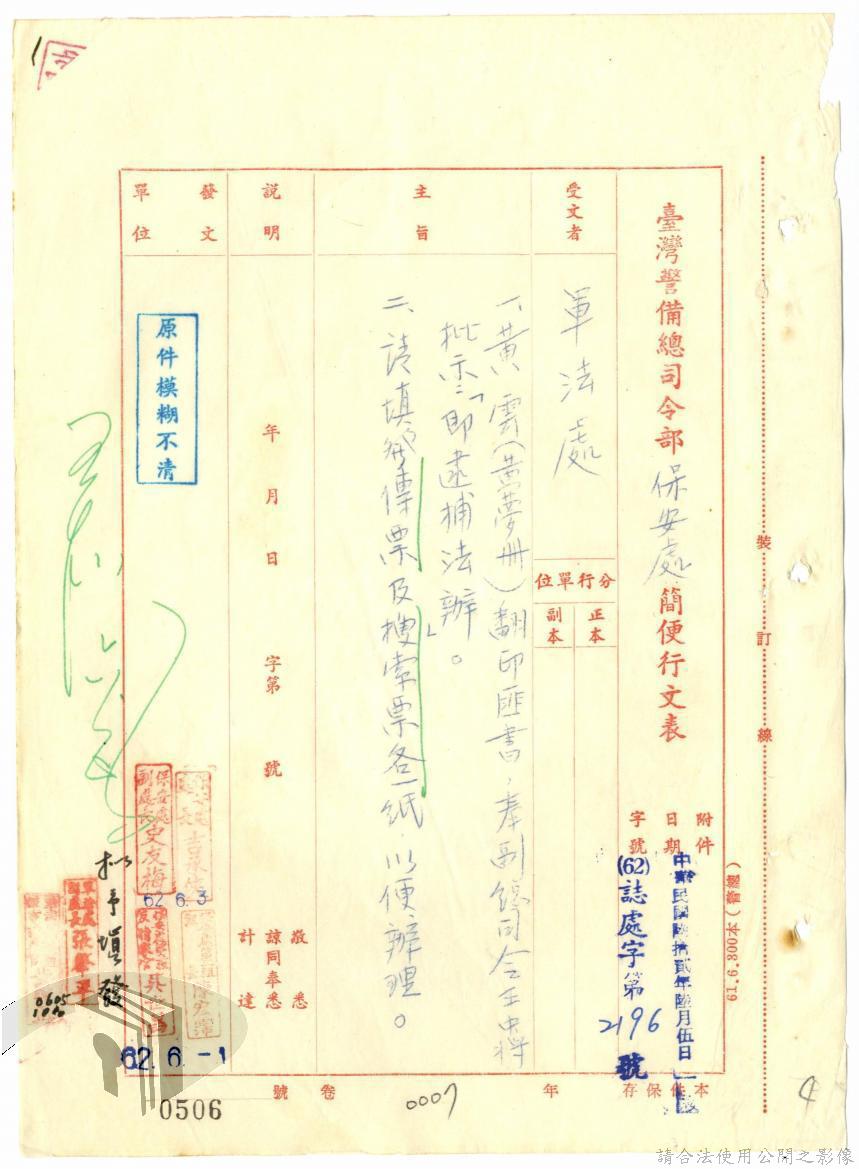 臺灣警備總司令部保安處簡便行文表
附件
日期 中華民國陸拾貳年陸月伍日
字號 (62)誌處字第2196號
本件保存 年
受文者 軍法處
分行單位
正本
副本
主旨
一、黃雲(黃夢卌)翻印匪書,奉副總司令王中將
批示:「即逮捕法辦」。
二、請填發傳票及搜索票各一紙,以便辦理。
說明
年 月 日 字第 號
敬悉
諒同奉悉
計達
發文單位
原件模糊不清
保安處副處長 史友梅
62 6.3
62.6.-1
擬予填發
0605
卷 號
0506
0007
裝 訂 線
61.6.800本(警總)
4
請合法使用公開之影像